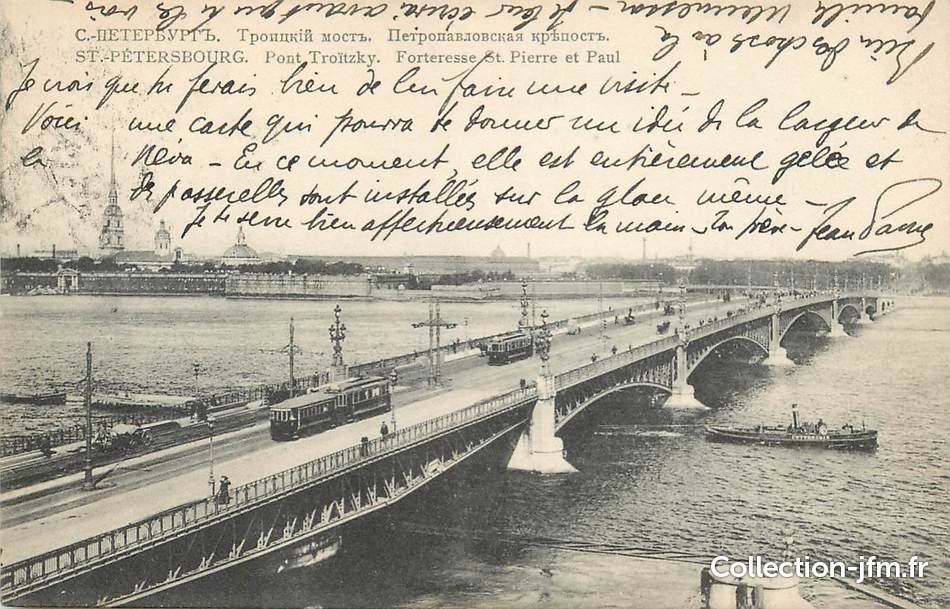 С.-ПЕТЕРБУРГЪ. Троицкій мостъ. Петропавловская крѣпость.
ST.-PÉTERSBOURG. Pont Troïtzky. Forteresse St. Pierre et Paul
Je crois que tu ferais bien de leur faire une visite -
Voici une carte qui pourra te donner une idée de la largeur de
la Néva - En ce moment, elle est entièrement gelée et
des passerelles sont installées sur la glace même -
Je te serre bien affectueusement la main - ton frère - Jean Pierre
Bien des choses à la
famille - Je leur écrirai avant que je les vois
Collection-jfm.fr